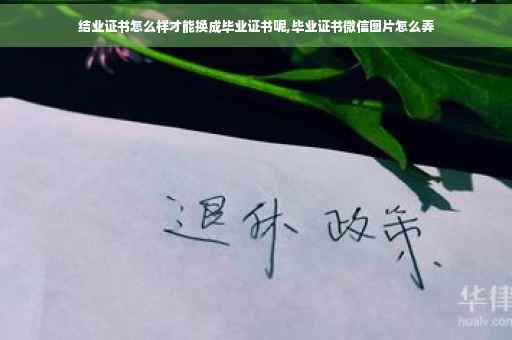 结业证书怎么样才能换成毕业证书呢,毕业证书微信图片怎么弄
退休 政策
华律
hualv.com